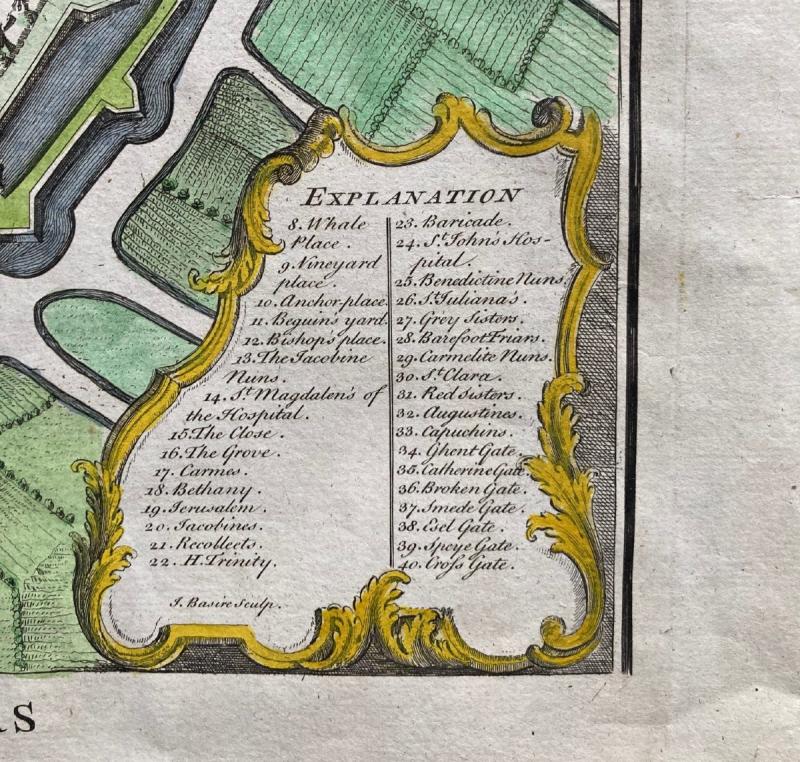 EXPLANATION
8. Whale
Place.
9. Vineyard
place.
10. Anchor-place.
11. Beguin's yard
12. Bishop's place.
13. The Iacobine
Nuns.
14. St. Magdalen's of
the Hospital.
15. The Close.
16. The Grove.
17. Carmes.
18. Bethany.
19. Ierusalem.
20. Iacobines.
21. Recollects.
22. H. Trinity.
I. Basire Sculp.
23. Baricade.
24. St. Iohn's Hos-
pital.
25. Benedictine Nuns.
26. St. Iuliana's.
27. Grey Sisters.
28. Barefoot Friars.
29. Carmelite Nuns.
30. St. Clara.
31. Red Sisters.
32. Augustines.
33. Capuchins.
34. Ghent Gate.
35. Catherine Gate.
36. Broken Gate.
37. Smede Gate.
38. Esel Gate.
39. Speye Gate.
40. Croſs Gate.